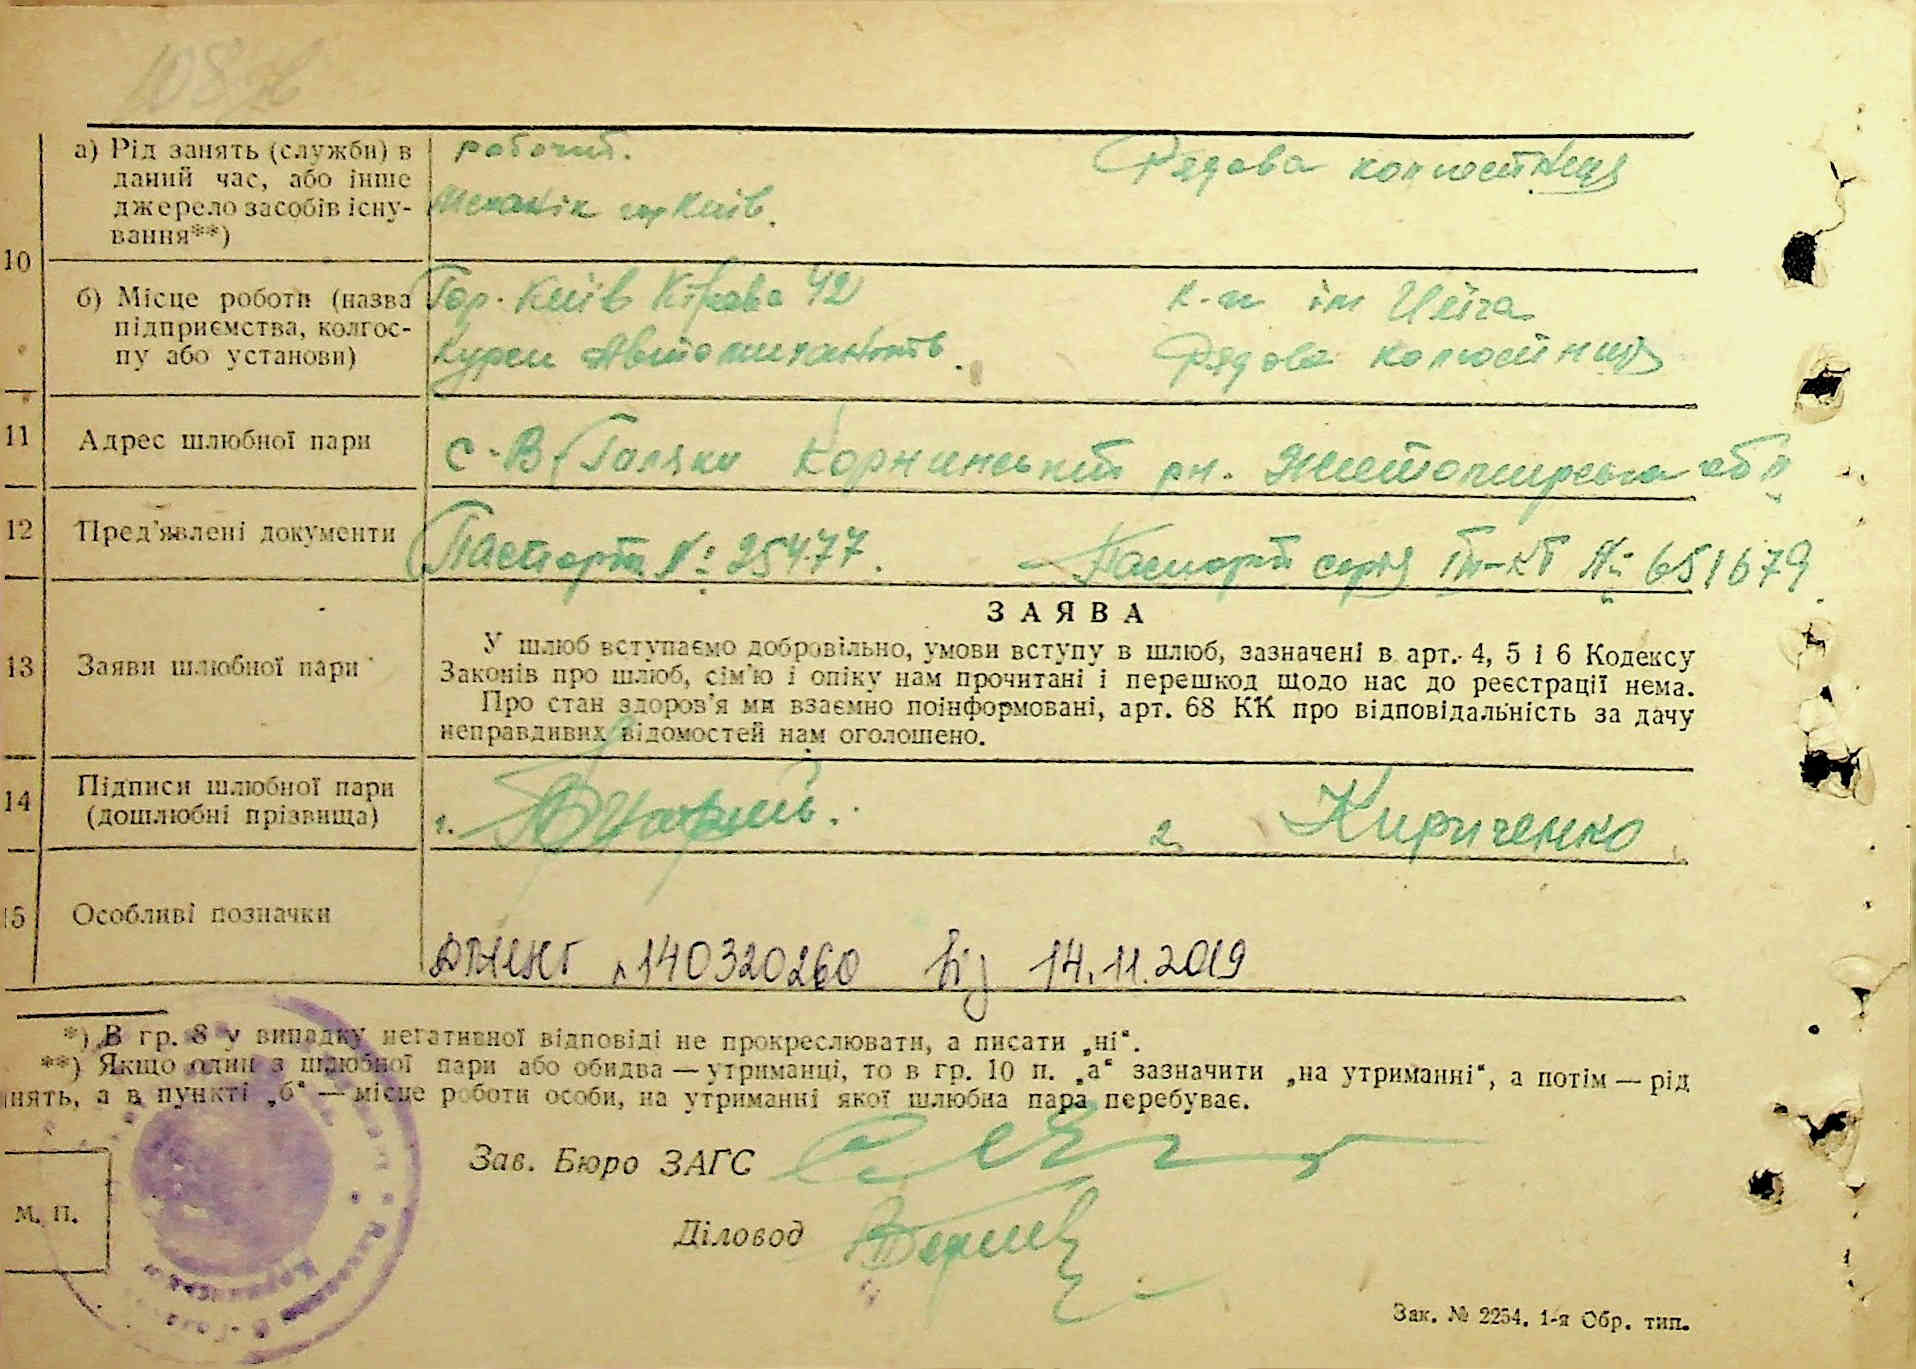 а) Рід занять (служби) в
даний час, або інше
джерело засобів існу-
вання**)
робочий.
Механік гор Київ.
Рядова колгоспниця
10
б) Місце роботи (назва
підприємства, колгос-
пу або установи)
Гор. Київ Кірова 42
Курси
к-п ім
Рядова колгоспниця
11
Адрес шлюбної пари
с. В Корнинський рн. Житомирська обл
12
Пред'явлені документи
Паспорт № 25477.
Паспорт серія № 651679
З А Я В А
13
Заяви шлюбної пари
У шлюб вступаємо добровільно, умови вступу в шлюб, зазначені в арт. 4, 5 і 6 Кодексу
Законів про шлюб, сім'ю і опіку нам прочитані і перешкод щодо нас до реєстрації нема.
Про стан здоров'я ми взаємно поінформовані, арт. 68 КК про відповідальність за дачу
неправдивих відомостей нам оголошено.
14
Підписи шлюбної пари
(дошлюбні прізвища)
1.
2. Кириченко
15
Особливі позначки
140320260 від 14.11.2019
*) В гр. 8 у випадку негативної відповіді не прокреслювати, а писати „ні".
**) Якщо один з шлюбної пари або обидва — утриманці, то в гр. 10 п. „а" зазначити „на утриманні", а потім — рід
нять, а в пункті „б" — місце роботи особи, на утриманні якої шлюбна пара перебуває.
Зав. Бюро ЗАГС
М. П.
Діловод
Зак. № 2254. 1-я Обр. тип.